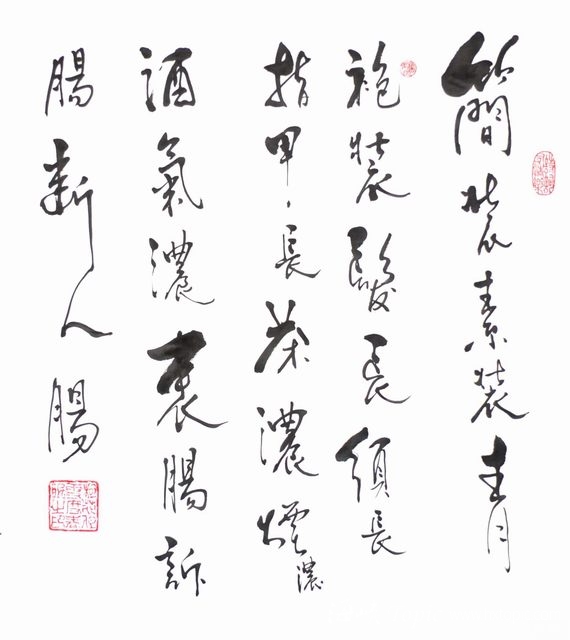 簡裝素裝青
袍裝髮長須長
指甲長茶濃煙濃
酒氣濃衷腸訴
腸斷人腸